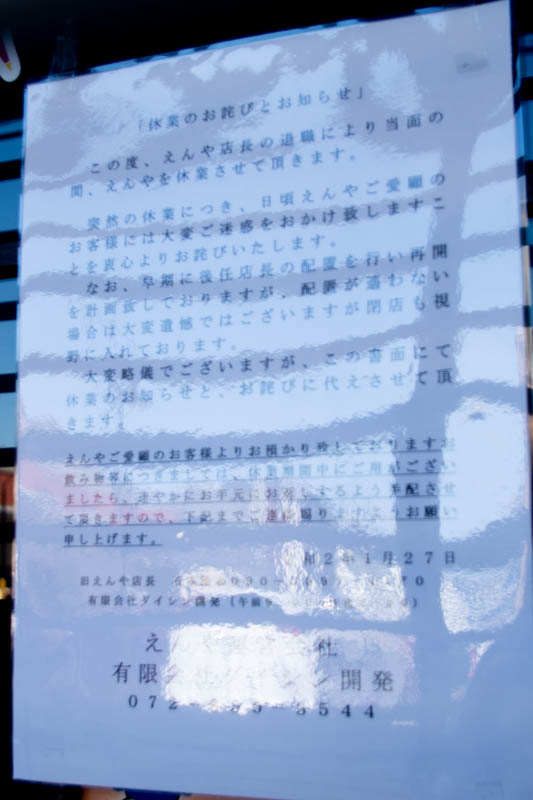 「休業のお詫びとお知らせ」
この度、えんや店長の退職により当面の
間、えんやを休業させて頂きます。
突然の休業につき、日頃えんやご愛顧の
お客様には大変ご迷惑をおかけ致しますこ
とを衷心よりお詫びいたします。
なお、早期に後任店長の配置を行い再開
を計画致しておりますが、配置が適わない
場合は大変遺憾ではございますが閉店も視
野に入れております。
大変略儀でございますが、この書面にて
休業のお知らせと、お詫びに代えさせて頂
きます。
えんやご愛顧のお客様よりお預かり致しておりますお
飲み物等につきましては、休業期間中にご用がござい
ましたら、速やかにお手元にお渡しするよう手配させ
て頂きますので、下記までご連絡賜りますようお願い
申し上げます。
和2年1月27日
旧えんや店長
有限会社ダイシン開発（午前9
えんや
会社
有限会社ダイシン開発
072-
544